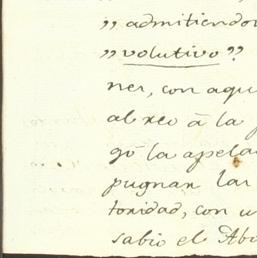 „ admitiendo
„ volutivo?
ner, con aqu
al reo â la p
gô la apela
pugnan las
toridad, con u
sabio el Abo